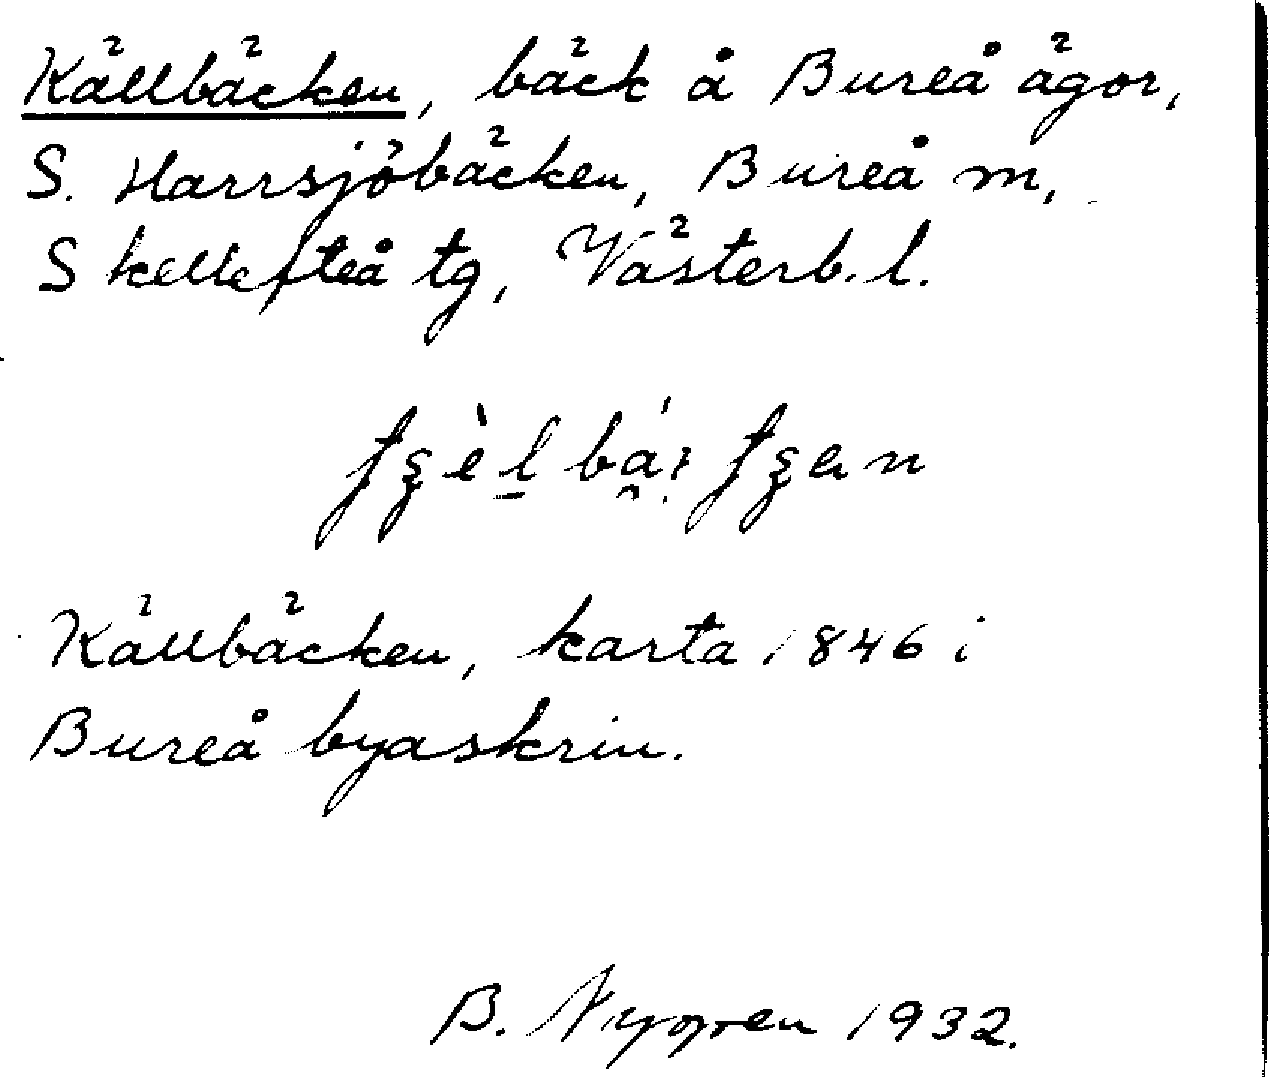 Källbäcken, bäck å Bureå ägor,
S. Harrsjöbäcken, Bureå m,
Skellefteå tg, Västerb. l.
Källbäcken, karta 1846 i
Bureå byaskrin.
B. Nygren 1932.